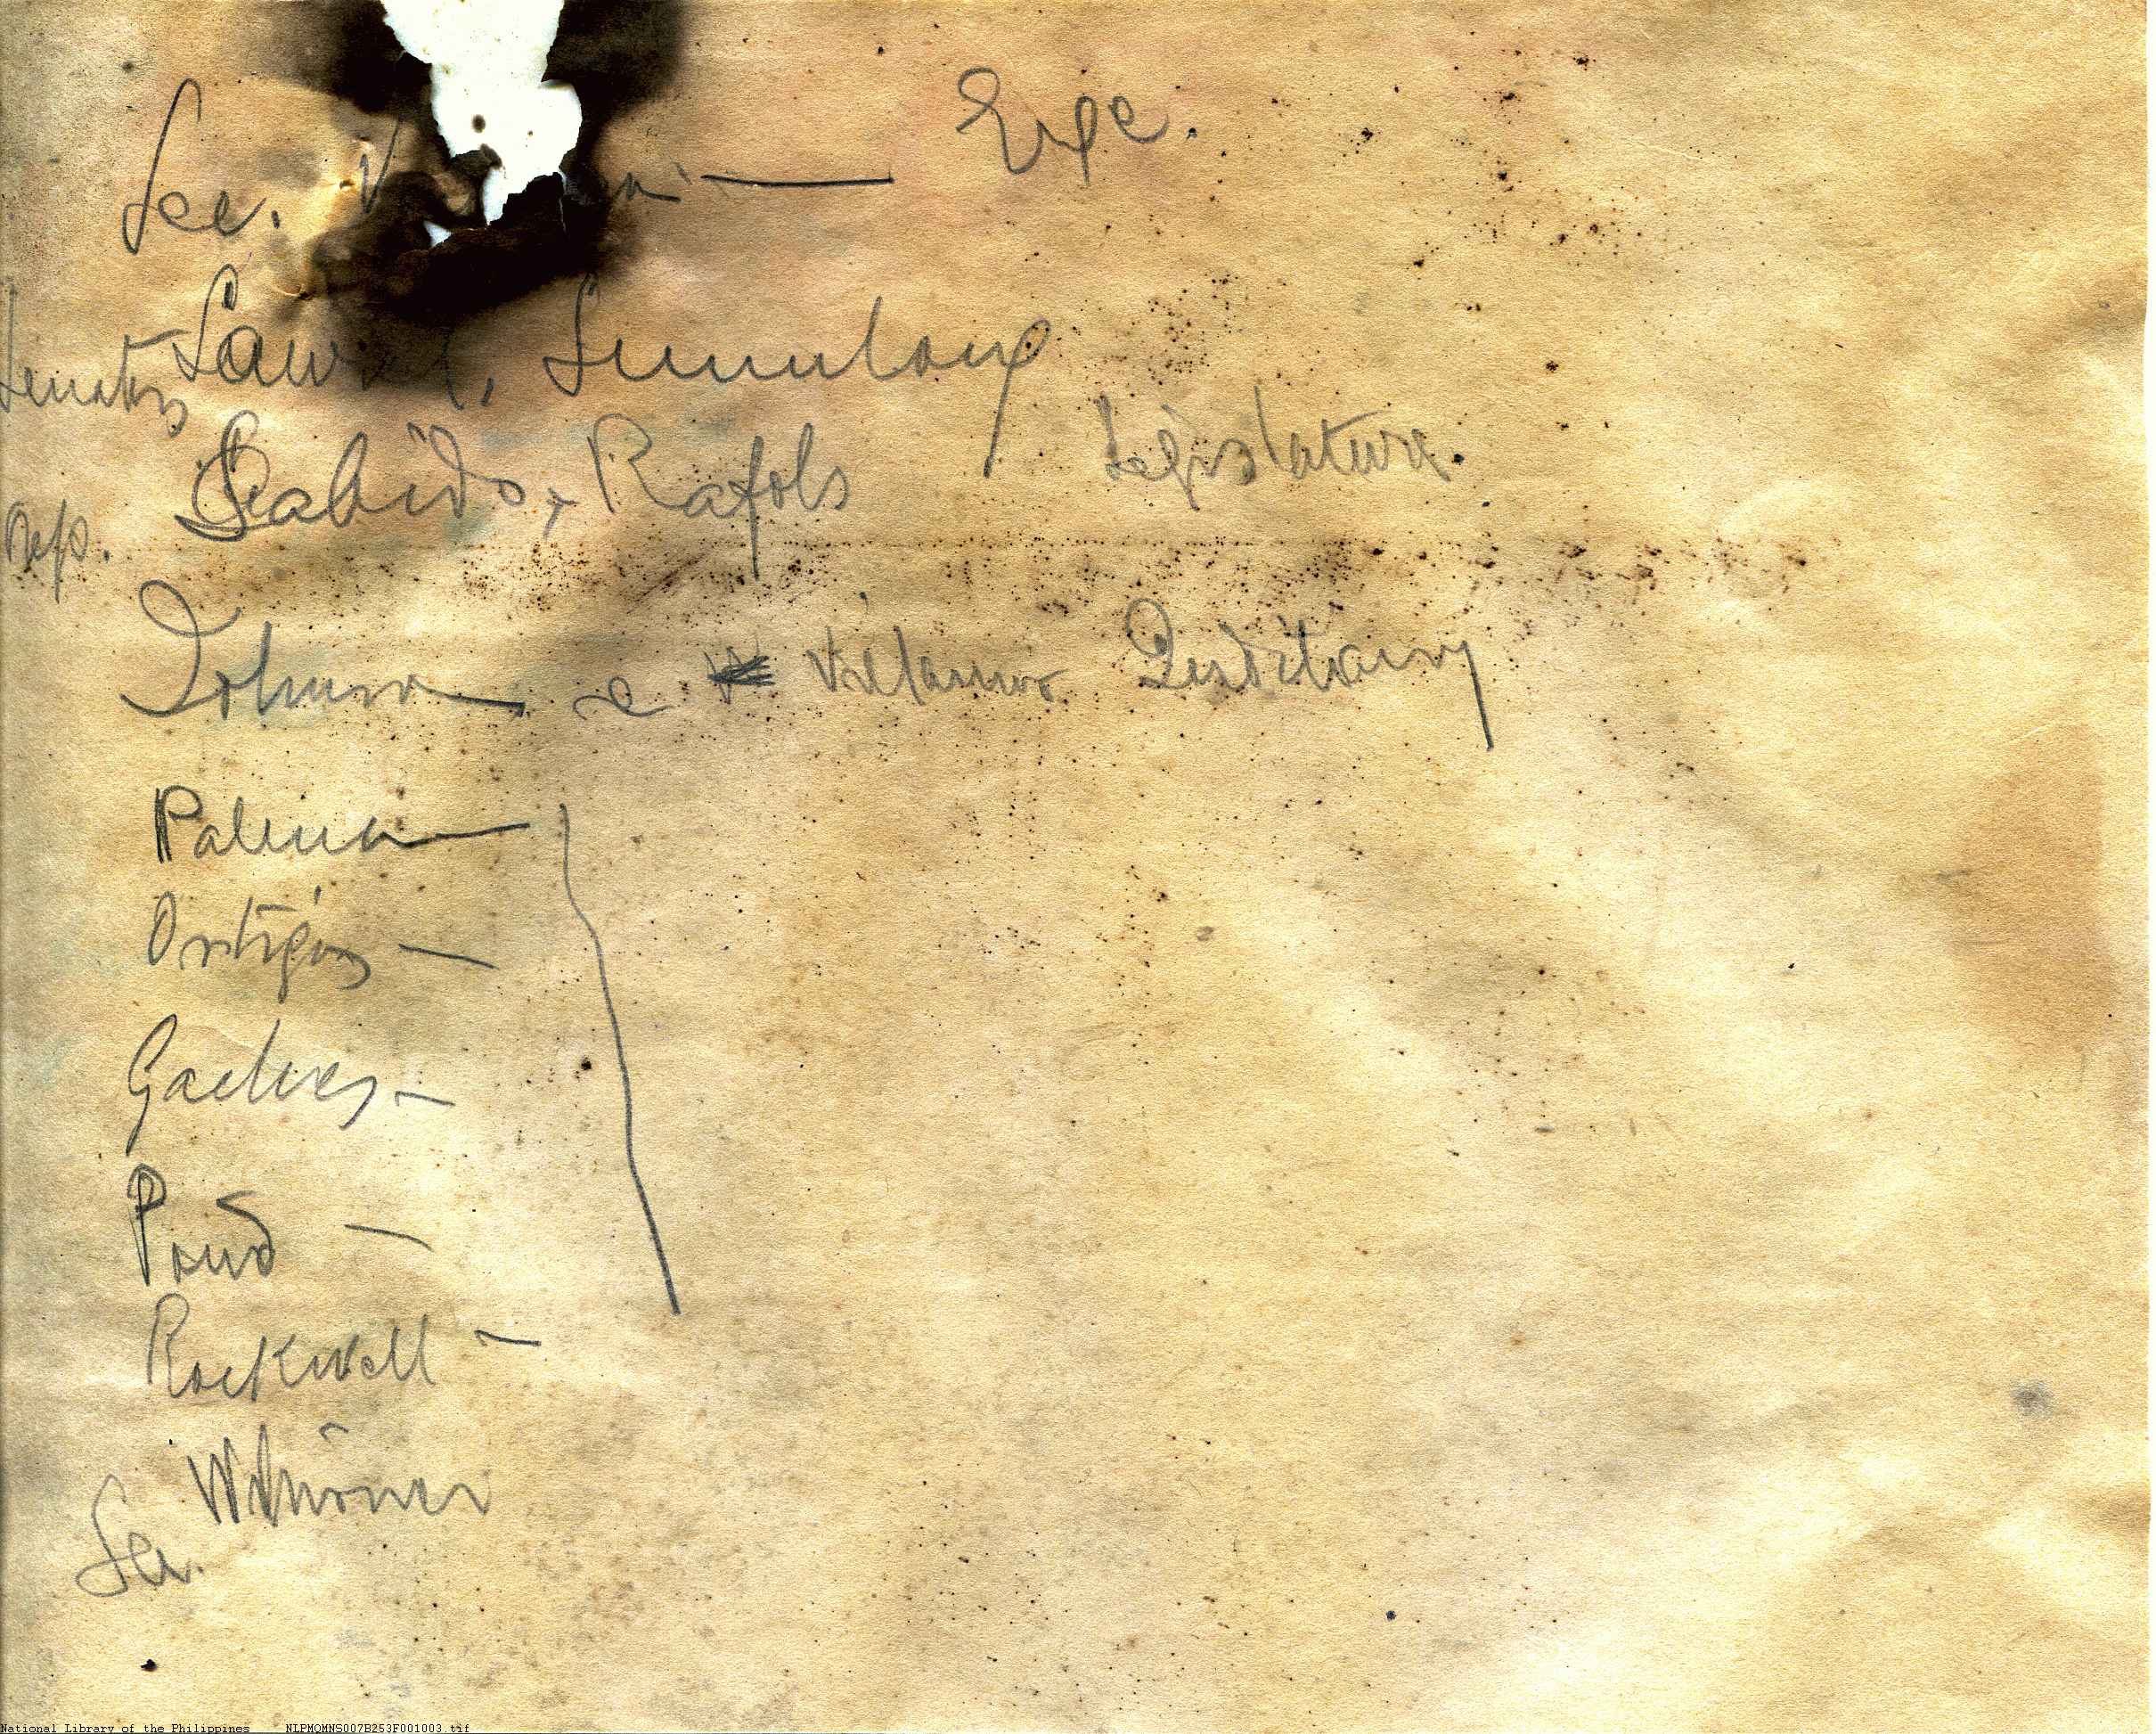 Sec. V — Exe.
Senators Laurel, Sumulong
Legislature.
Rep. Sabido, Rafols
Johnson e Villamor Judiciary
Palma —
Ortigas —
Gaches —
Pond —
Rockwell —
Sec.
National Library of the Philippines NLPMQMNS007B253F001003.tif